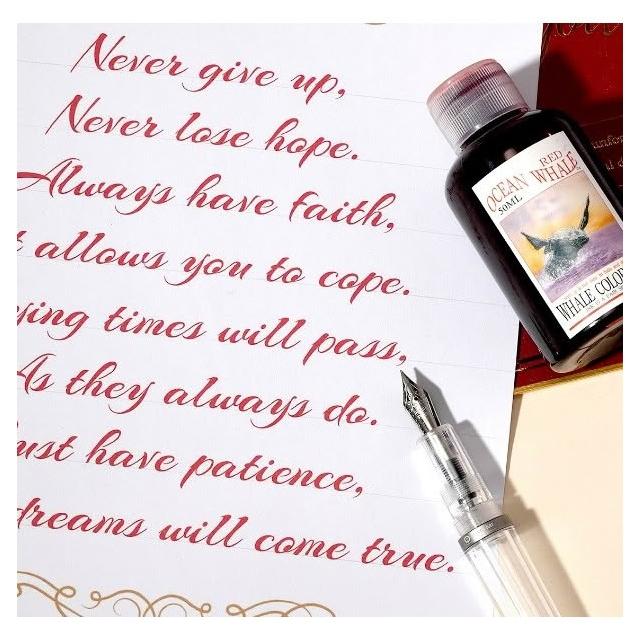 Never give up,
Never lose hope.
Always have faith,
t allows you to cope.
ying times will pass,
As they always do.
ust have patience,
dreams will come true.
OCEAN RED WHALE
50ML
WHALE COLOR